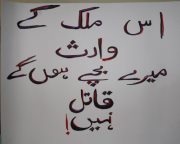 اس ملک کے
وارث
میرے بچے ہوں گے
قاتل
نہیں!